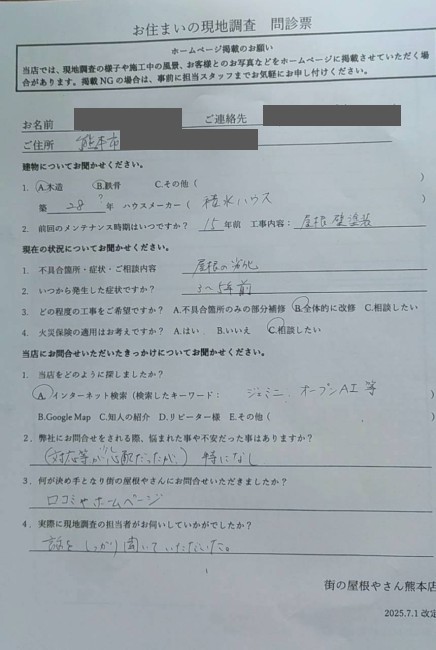 お住まいの現地調査　問診票
ホームページ掲載のお願い
当店では、現地調査の様子や施工中の風景、お客様とのお写真などをホームページに掲載させていただく場
合があります。掲載NGの場合は、事前に担当スタッフまでお気軽にお申し付けください。
お名前　ご連絡先
ご住所　熊本市
建物についてお聞かせください。
1. A.木造　B.鉄骨　C.その他（　）
築　28?　年　ハウスメーカー（　積水ハウス　）
2. 前回のメンテナンス時期はいつですか？　15　年前　工事内容：　屋根 壁塗装
現在の状況についてお聞かせください。
1. 不具合箇所・症状・ご相談内容　屋根の劣化
2. いつから発生した症状ですか？　3〜5年前
3. どの程度の工事をご希望ですか？　A.不具合箇所のみの部分補修　B.全体的に改修　C.相談したい
4. 火災保険の適用はお考えですか？　A.はい　B.いいえ　C.相談したい
当店にお問合せいただいたきっかけについてお聞かせください。
1. 当店をどのように探しましたか？
A.インターネット検索（検索したキーワード：　ジェミニ、オープンAI等
B.Google Map　C.知人の紹介　D.リピーター様　E.その他（　）
2. 弊社にお問合せをされる際、悩まれた事や不安だった事はありますか？
（対応等が心配だったが、）特になし
3. 何が決め手となり街の屋根やさんにお問合せいただきましたか？
口コミやホームページ
4. 実際に現地調査の担当者がお伺いしていかがでしたか？
話をしっかり聞いていただいた。
街の屋根やさん熊本店
2025.7.1 改定